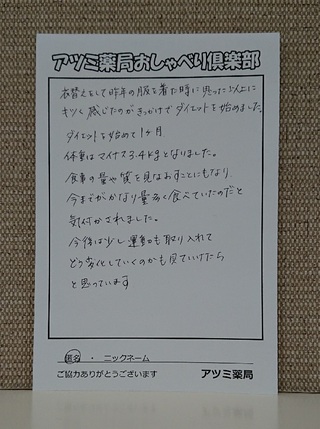 アツミ薬局おしゃべり倶楽部
衣替えをして昨年の服を着た時に思った以上に
キツく感じたのがきっかけでダイエットを始めました。
ダイエットを始めて1ヶ月
体重はマイナス3.4kgとなりました。
食事の量や質を見なおすことにもなり
今までがかなり量多く食べていたのだと
気付かされました。
今後は少し運動も取り入れて
どう変化していくのかも見ていけたら
と思っています
匿名 ・ ニックネーム
ご協力ありがとうございます アツミ薬局